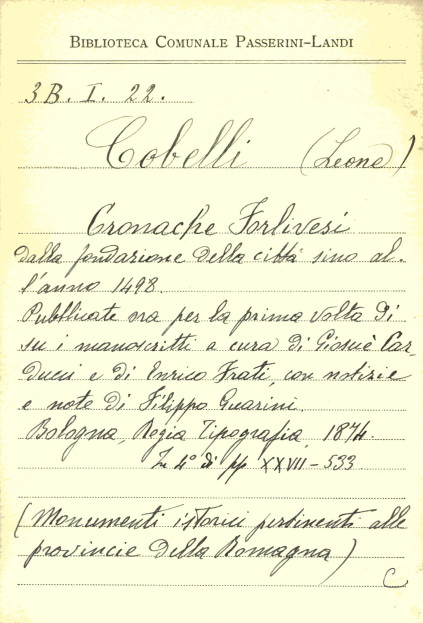 BIBLIOTECA COMUNALE PASSERINI-LANDI
3B. I. 22.
Cobelli (Leone)
Cronache Forlivesi
dalla fondazione della città sino al-
l'anno 1498.
Pubblicate ora per la prima volta di
su i manoscritti a cura di Giosuè Car-
ducci e di Enrico Frati, con notizie
e note di Filippo Guarini.
Bologna, Regia Tipografia, 1874.
In 4° di pp. XXVII-533
(Monumenti istorici pertinenti alle
provincie della Romagna)
C